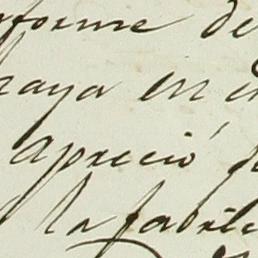 forme de
haya en
apreció
la fabric